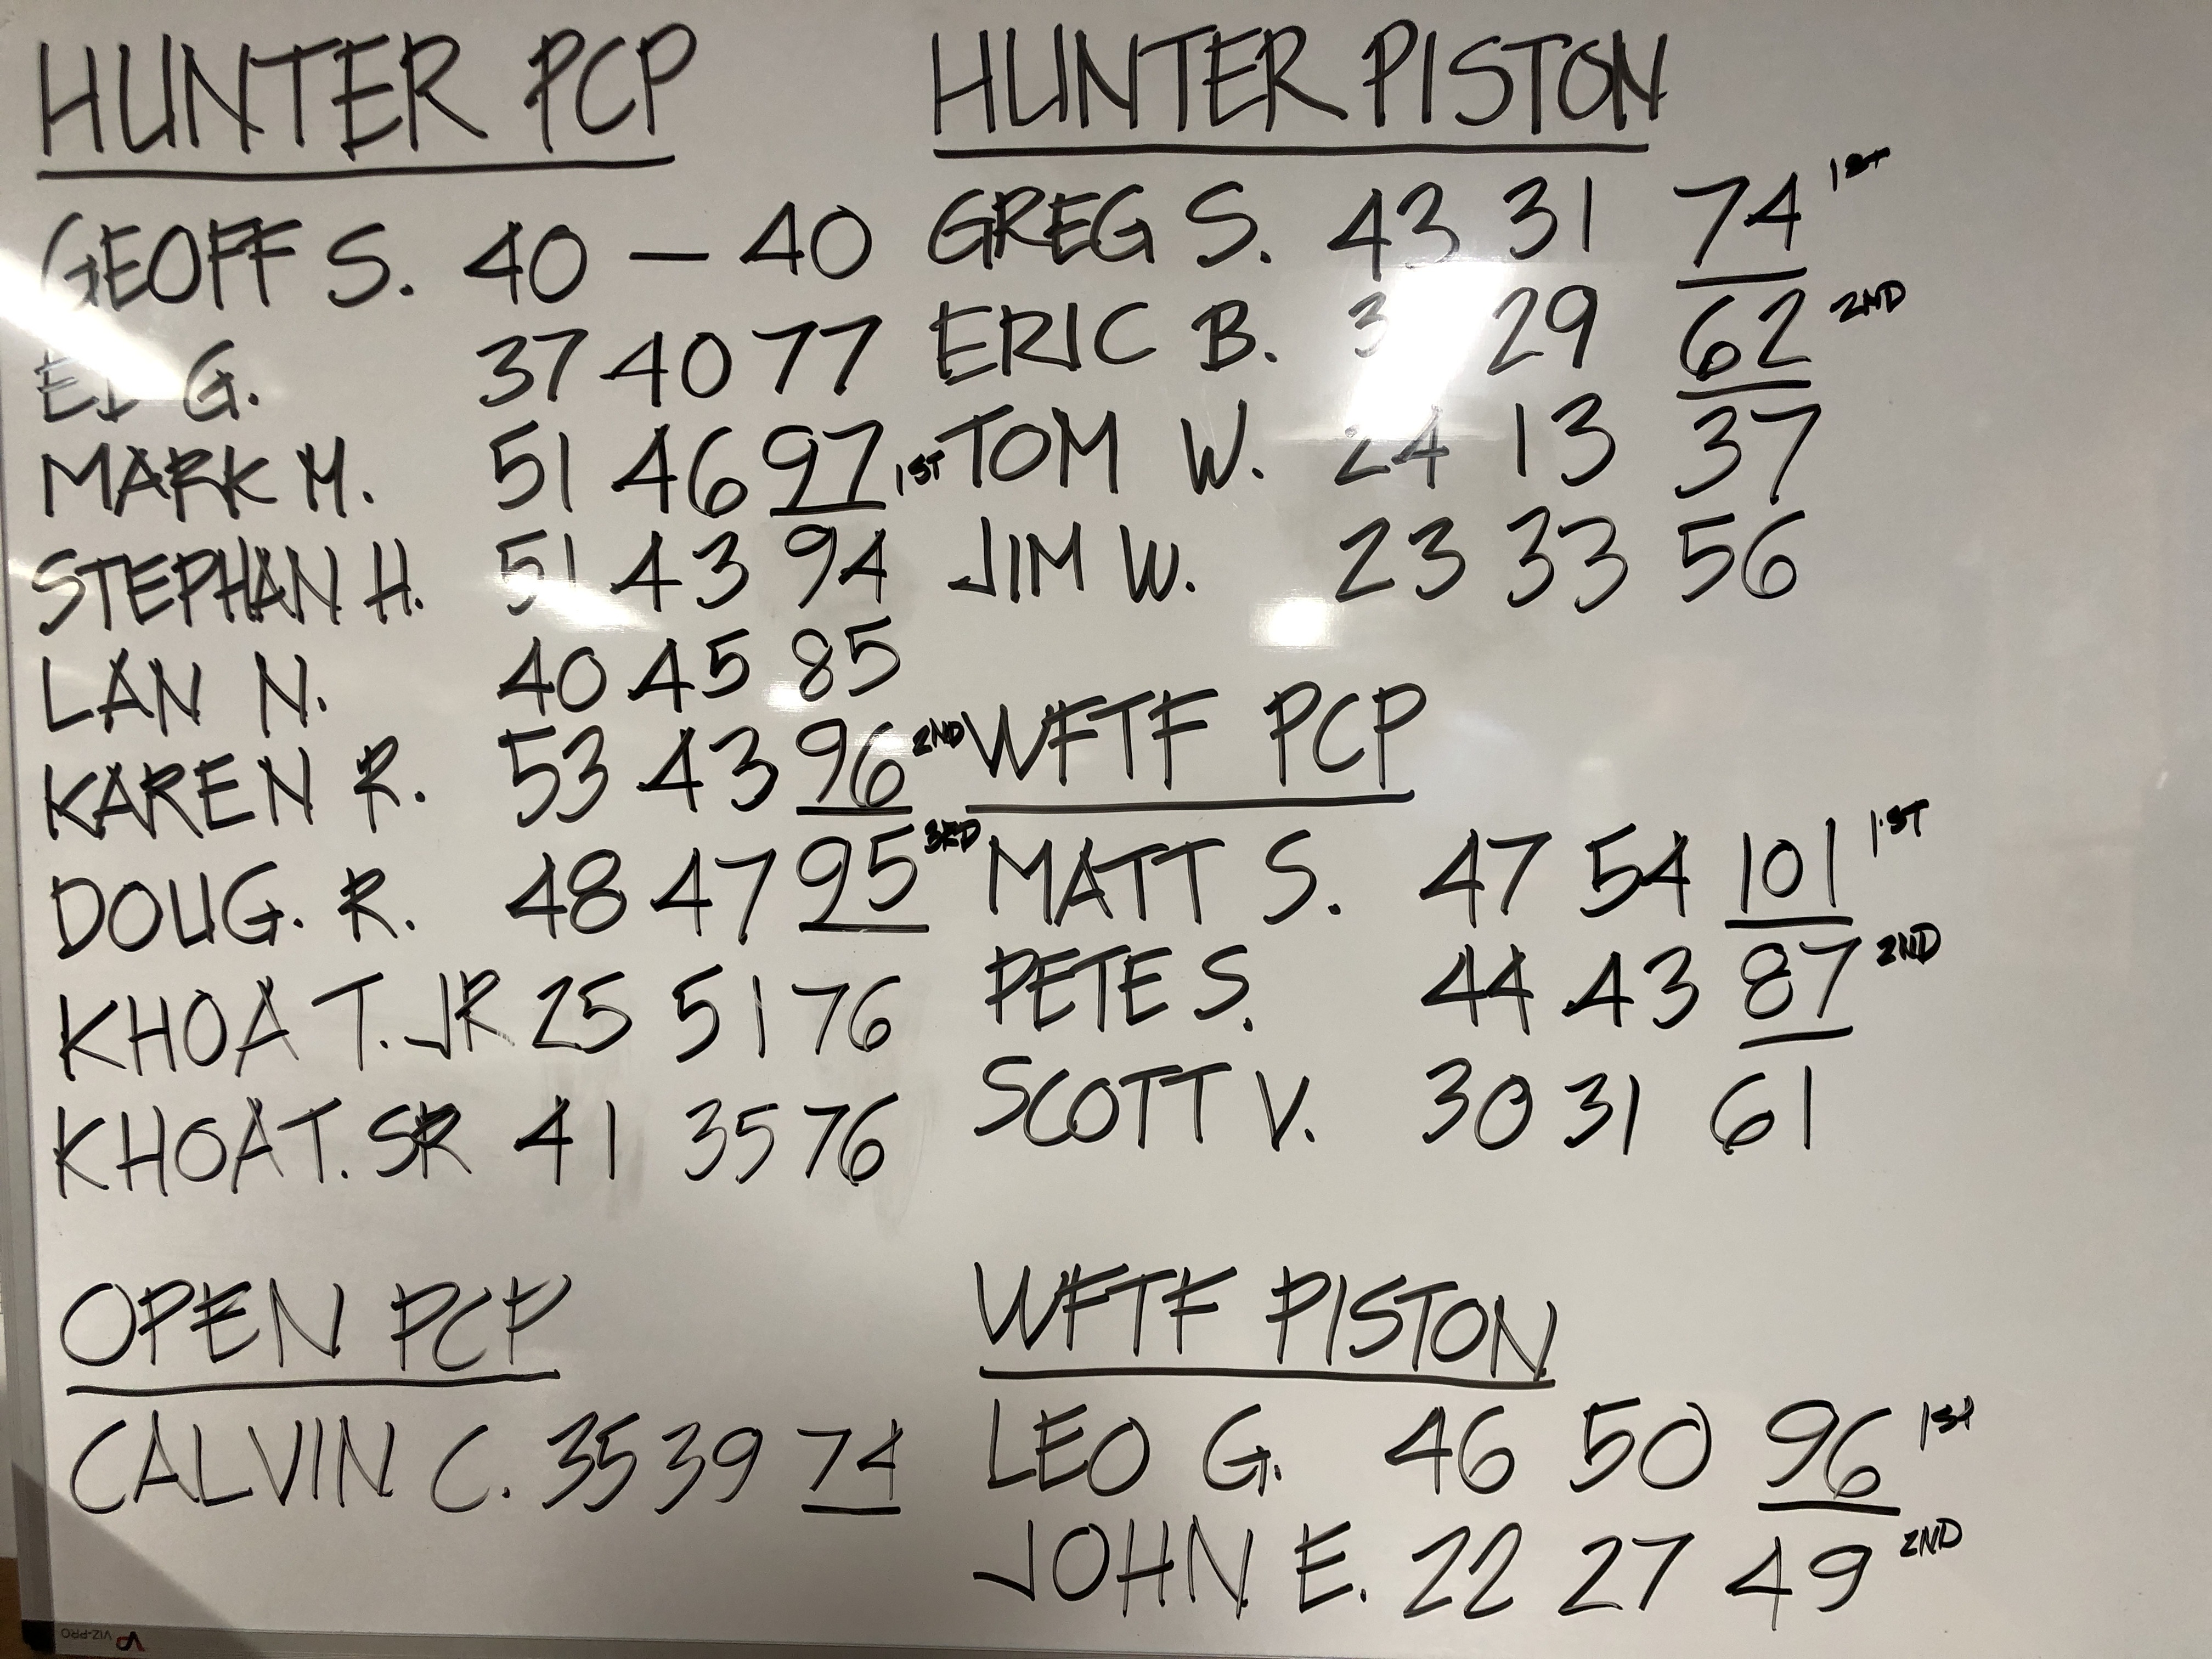 HUNTER PCP
GEOFF S. 40 — 40
G. 37 40 77
MARK M. 51 46 97 1ST
STEPHAN H. 51 43 94
LAN N. 40 45 85
KAREN R. 53 43 96 2ND
DOUG. R. 48 47 95 3RD
KHOA T. JR 25 51 76
KHOA T. SR 41 35 76
OPEN PCP
CALVIN C. 35 39 74
HUNTER PISTON
GREG S. 43 31 74 1ST
ERIC B. 29 62 2ND
TOM W. 24 13 37
JIM W. 23 33 56
WFTF PCP
MATT S. 47 54 101 1ST
PETE S. 44 43 87 2ND
SCOTT V. 30 31 61
WFTF PISTON
LEO G. 46 50 96 1ST
JOHN E. 22 27 49 2ND
VIZ-PRO